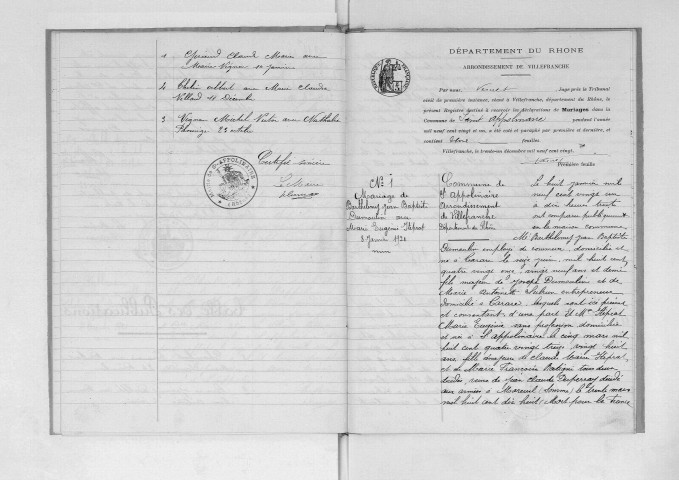 1 Claude Marie avec
Marie Vignon 10 janvier
4 Chatin Albert avec Marie Claudia
Villard 4 Décembre
3 Vignon Michel Victor avec Nathalie
23 octobre
Certifié sincère
Le Maire
MAIRIE DE ST-APPOLINAIRE
DÉPARTEMENT DU RHONE
ARRONDISSEMENT DE VILLEFRANCHE
Par nous, Juge près le Tribunal
civil de première instance, séant à Villefranche, département du Rhône, le
présent Registre destiné à recevoir les déclarations de Mariages dans la
Commune de Saint Appolinaire pendant l'année
mil neuf cent vingt et un, a été coté et paraphé par première et dernière, et
contient feuilles.
Villefranche, le trente-un décembre mil neuf cent vingt.
Première feuille
No 1
Mariage de
Barthélemy Jean Baptiste
Dumoulin avec
Marie Eugénie
8 Janvier 1921
Commune de
St Appolinaire
Arrondissement
de Villefranche
Département du Rhône
Le huit janvier mil
neuf cent vingt un
à dix heures trente
ont comparu publiquement
en la maison commune
Mr Barthélemy Jean Baptiste
Dumoulin employé de commerce, domicilié et
né à Tarare le seize juin mil huit cent
quatre vingt onze, vingt neuf ans et demi
fils majeur de Joseph Dumoulin et de
Marie Antoinette entrepreneur
domicilié à Tarare, lesquels sont ici présents
et consentants, d'une part et Mme
Marie Eugénie sans profession domiciliée
et née à St Appolinaire le cinq mars mil
huit cent quatre vingt treize vingt huit
ans fille majeure de Claude Marie
et de Marie Françoise tous deux
décédés veuve de Jean Claude décédé
aux armées à Mareuil (Somme) le trente mars
mil neuf cent dix huit, Mort pour la France